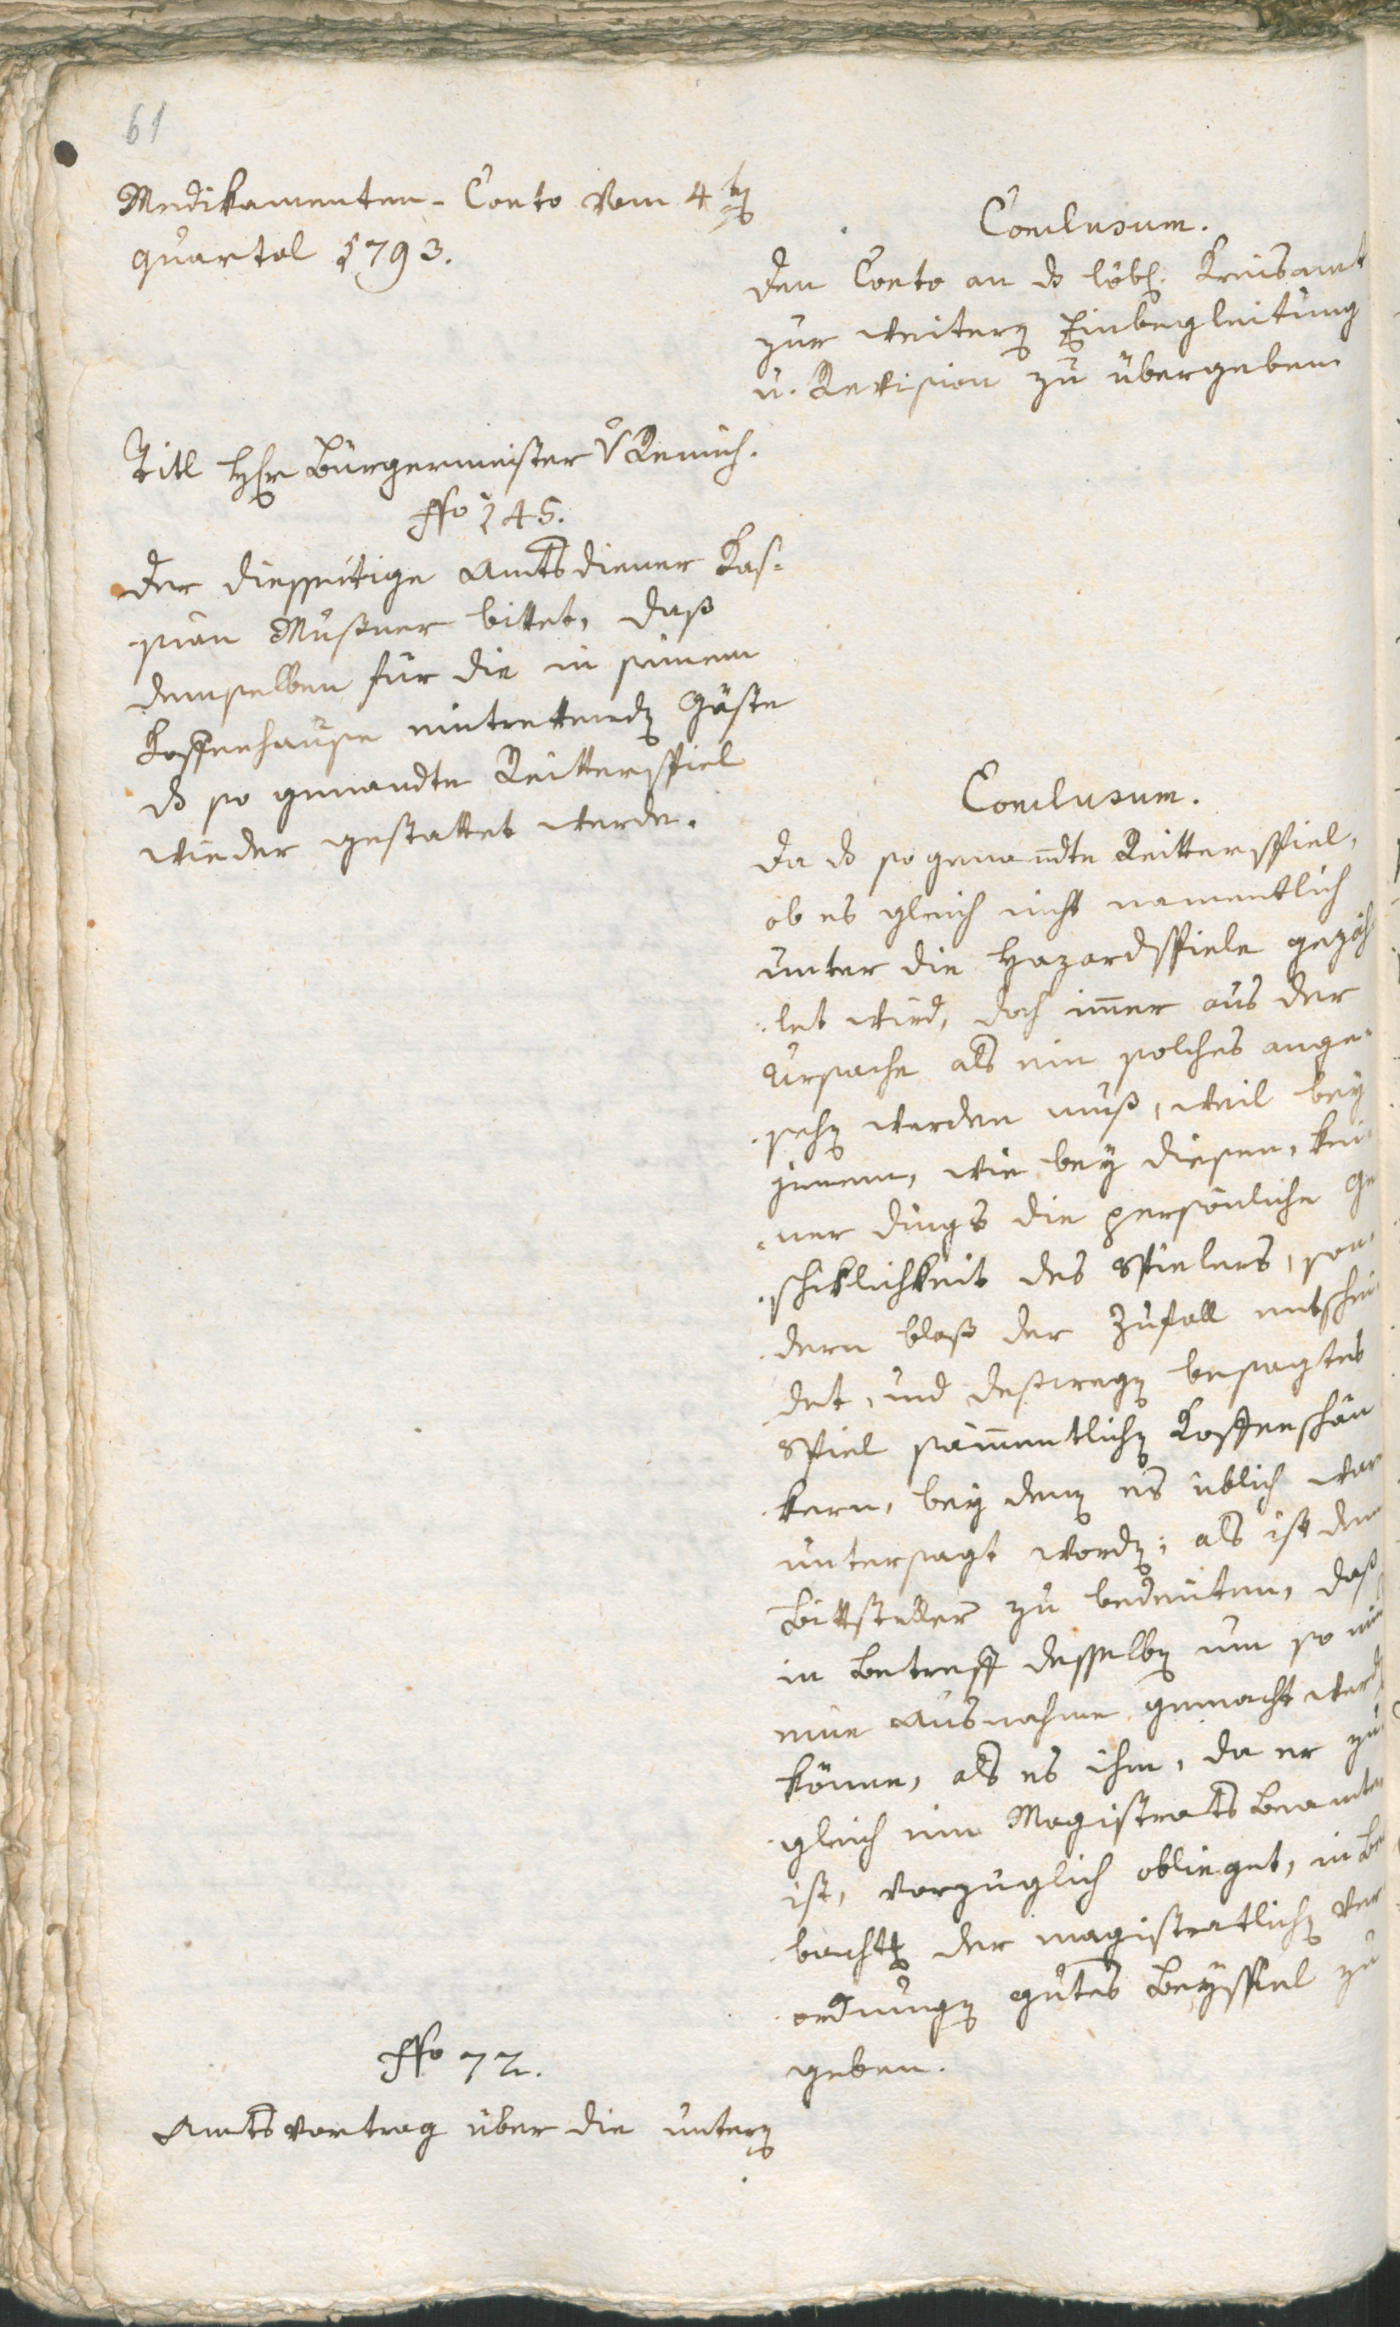 61
Medikamenten-Conto vom 4ten
quartal 1793.
Conclusum.
den Conto an das löbl. Kreisamt
zur weitern Einbegleitung
u. Revision zu übergeben
Titl Hr Bürgermeister v Remich.
No 145.
der diesseitige Amtsdiener Kas-
sian Mußner bittet, daß
demselben für die in seinem
Koffeehause eintrettenden Gäste
das so genandte Reitterspiel
wieder gestattet werde.
Conclusum.
da das so genandte Reitterspiel,
ob es gleich nicht namentlich
unter die Hazardspiele gezäh-
let wird, doch immer aus der
Ursache als ein solches ange-
sehen werden muß, weil bey
jenem, wie bey diesen, kei-
ner dings die persönliche Ge
schiklichkeit des Spielers, son-
dern blos der Zufall entschei-
det, und deßwegen besagtes
Spiel sämmentlichen Koffeeschän
kern, bey denen es üblich war
untersagt worden; als ist dem
Bittsteller zu bedeuten, daß
in betreff desselben um so min
eine Ausnahme gemacht werden
könne, als es ihm, da er zu-
gleich ein Magistrats Beamter
ist, vorzüglich oblieget, in Be
bachtg der magistratlichen Ver
ordnungen gutes Beyspiel zu
geben.
No 72.
Amtsvortrag über die untern